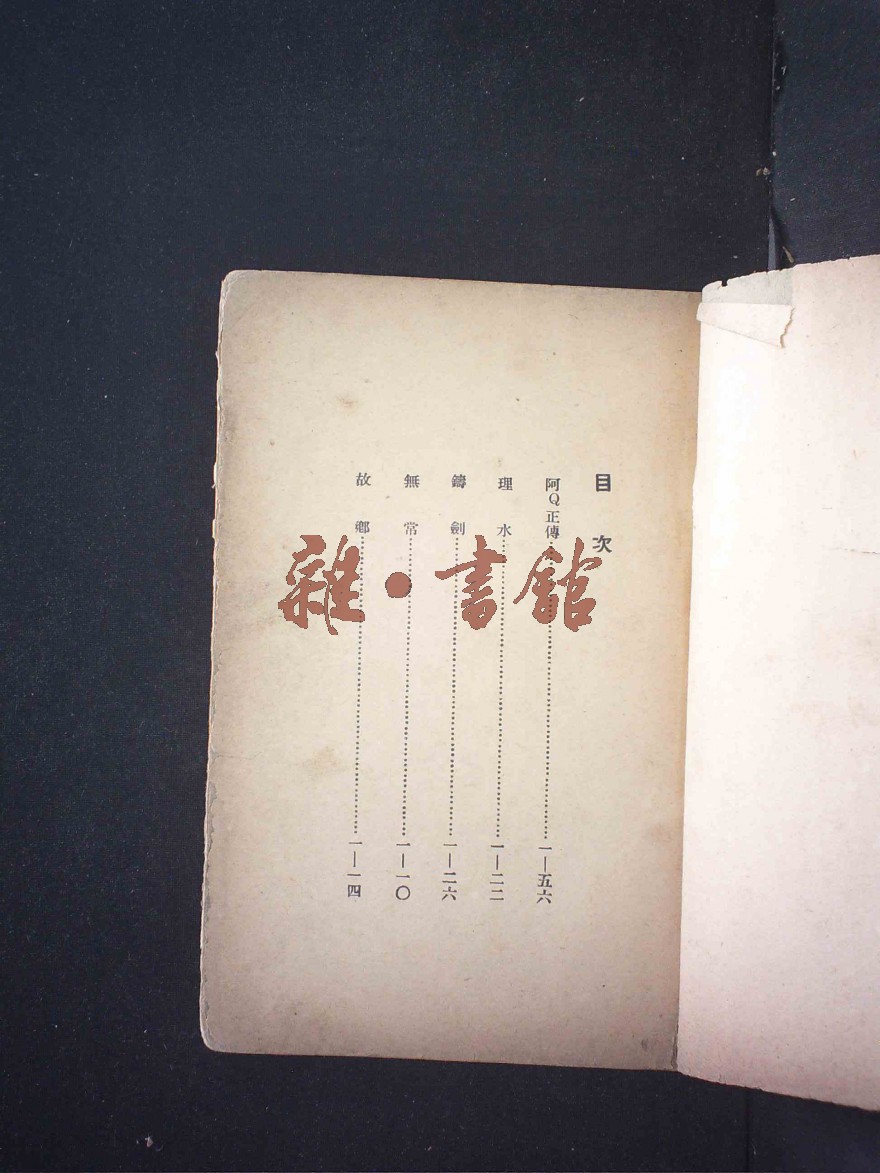 目次
阿Q正傳…………一—五六
理水…………一—二二
鑄劍…………一—二六
無常…………一—一〇
故鄉…………一—一四
雜·書館